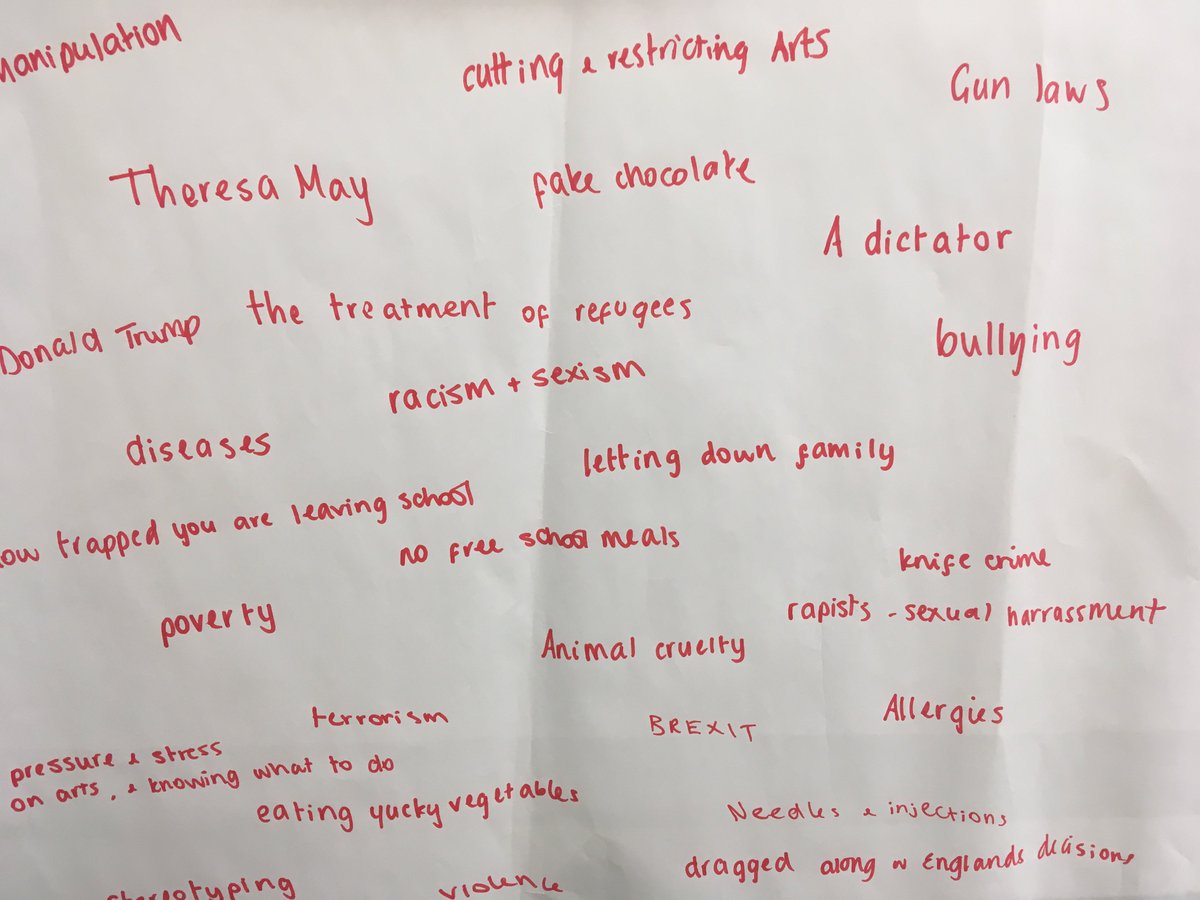 manipulation
cutting & restricting Arts
Gun laws
Theresa May
fake chocolate
A dictator
the treatment of refugees
Donald Trump
bullying
racism + sexism
diseases
letting down family
how trapped you are leaving school
no free school meals
knife crime
rapists - sexual harrassment
poverty
Animal cruelty
Allergies
terrorism
BREXIT
pressure & stress
on arts, & knowing what to do
eating yucky vegetables
Needles & injections
dragged along w Englands decisions
stereotyping
violence